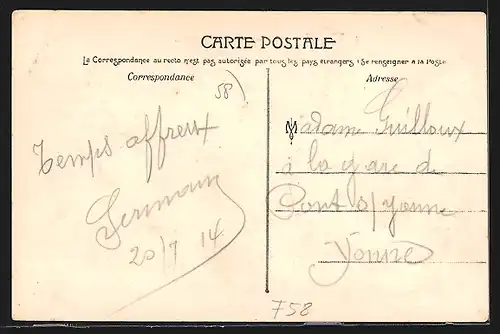 CARTE POSTALE
La Correspondance au recto n'est pas autorisée par tous les pays étrangers (Se renseigner à la Poste
Correspondance
Adresse
58
Temps affreux
Germain
20/7 14
Madame Guilloux
à la gare de
Pont s/yonne
Yonne
758